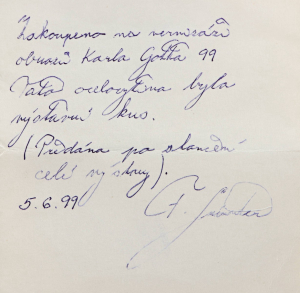 Zakoupeno na vernisáži
obrazů Karla Gotta 99
Tato ocelorytina byla
výstavní kus.
(Předána po skončení
celé výstavy).
5.6.99
F.